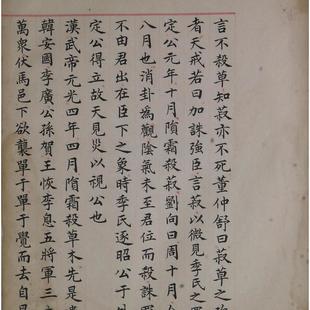 言不殺草知菽亦不死董仲舒曰菽草之
者天戒若曰加誅強臣言菽以微見季氏之
定公元年十月隕霜殺菽劉向曰周十月
八月也消卦為觀陰氣未至君位而殺誅
不由君出在臣下之象時季氏逐昭公于
定公得立故天見災以視公也
漢武帝元光四年四月隕霜殺草木先是
韓安國李廣公孫賀王恢李息五將軍三
萬衆伏馬邑下欲襲單于單于覺而去自是